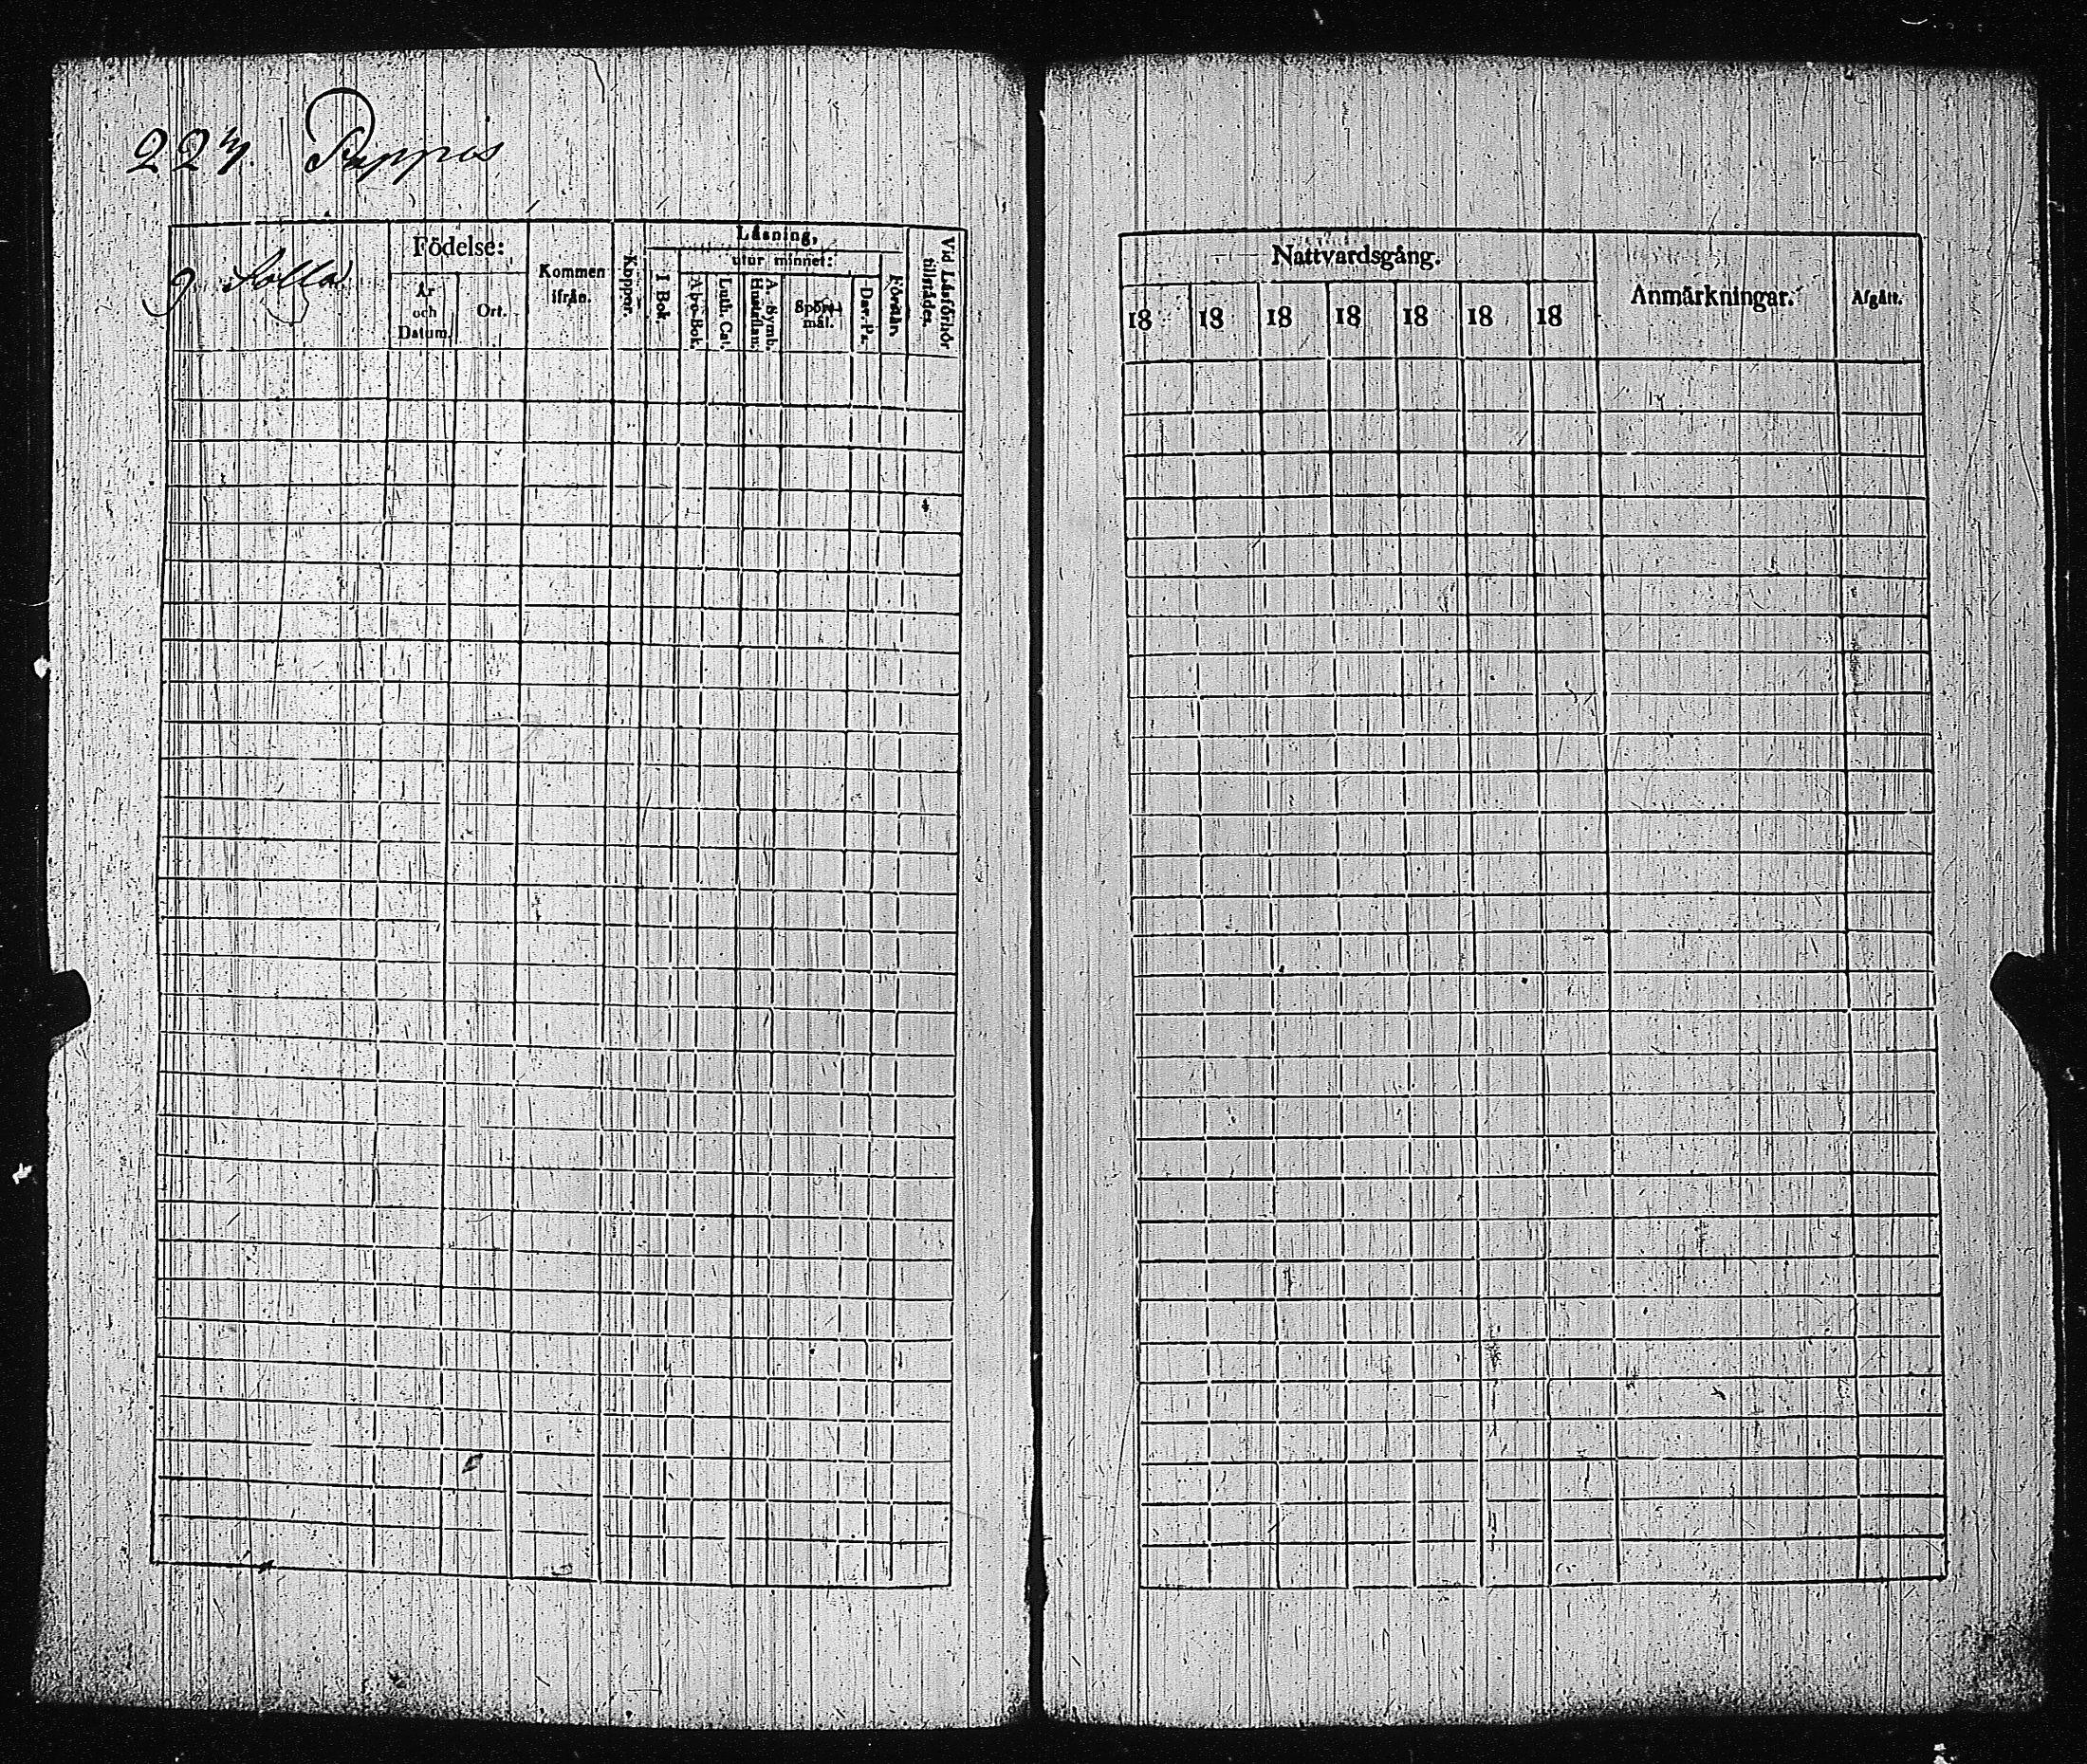 224 Pappos
9 Solla
Födelse:
År
och
Datum.
Ort.
Kommen
ifrån.
Koppor.
Läsning,
I Bok.
utur minnet:
Abc-Bok.
Luth. Cat.
A. Symb.
Hustaflan.
Spörs-
mål.
Dav. Ps.
Förstår.
Vid Läsförhör
tillstädes.
Nattvardsgång.
18 18 18 18 18 18 18
Anmärkningar.
Afgått.